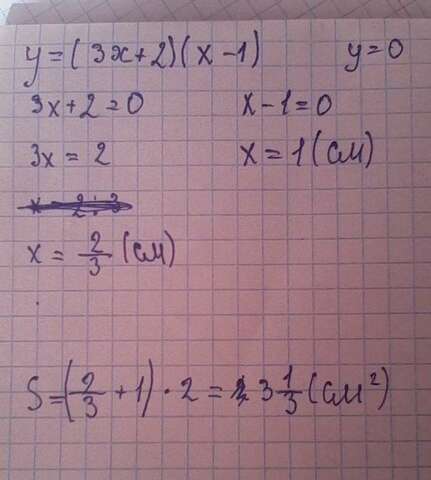 y=(3x+2)(x-1) y=0
3x+2=0 x-1=0
3x=2 x=1(см)
x=2:3
x=2/3(см)
S=(2/3+1)·2=3 1/3(см²)